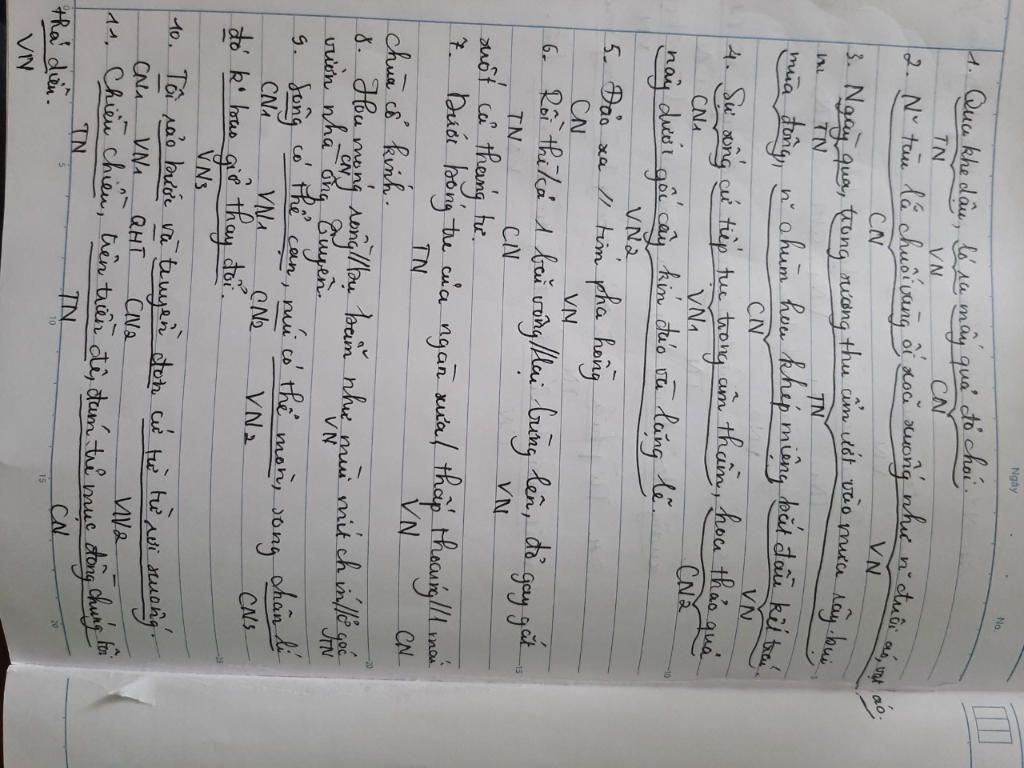 Ngày
No.
1. Qua khe dậu, ló ra mấy quả đỏ chói.
TN VN CN
2. N~ tàu lá chuối vàng ối xoã xuống như n~ đuôi áo, vạt áo.
CN VN
3. Ngày qua, trong sương thu ẩm ướt và mưa rây bụi
TN TN
mùa đông, n~ chùm hoa khép miệng bắt đầu kết trái
CN VN
4. Sự sống cứ tiếp tục trong âm thầm, hoa thảo quả
CN1 VN1 CN2
nảy dưới gốc cây kín đáo và lặng lẽ.
VN2
5. Đảo xa // tím pha hồng
CN VN
6. Rồi thì/cả 1 bãi vông//lại bừng lên, đỏ gay gắt
TN CN VN
suốt cả tháng tư.
7. Dưới bóng tre của ngàn xưa/ thấp thoáng//1 mái
TN VN CN
chùa cổ kính.
8. Hoa móng rồng//bụ bẫm như mùi mít chín//ở góc
CN VN TN
vườn nhà ông Tuyên.
9. Sông có thể cạn, núi có thể mòn, song chân lí
CN1 VN1 CN2 VN2 CN3
đó k bao giờ thay đổi.
VN3
10. Tồ sáo bước và truyền đơn cứ từ từ rơi xuống.
CN1 VN1 QHT CN2 VN2
11. Chiều chiều, trên triền đê, đám trẻ mục đồng chúng tôi
TN TN CN
thả diều.
VN